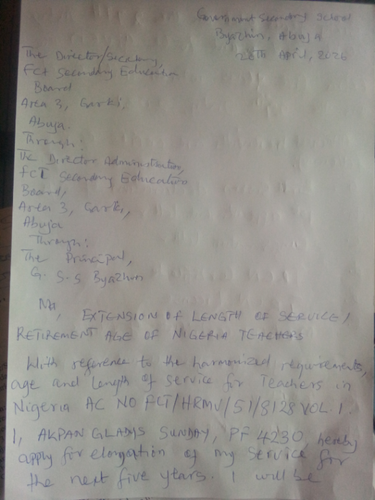 Government Secondary School
Byazhin, Abuja
28TH April, 2026
The Director/Secretary,
FCT Secondary Education
Board
Area 3, Garki,
Abuja.
Through:
The Director Administration,
FCT Secondary Education
Board,
Area 3, Garki,
Abuja
Through:
The Principal,
G. S. S Byazhin
Ma, EXTENSION OF LENGTH OF SERVICE/
RETIREMENT AGE OF NIGERIA TEACHERS
With reference to the harmonized requirements,
age and Length of Service for Teachers in
Nigeria AC NO FCT/HRMU/S1/S128 VOL. 1
I, AKPAN GLADYS SUNDAY, PF 4230, hereby
apply for elongation of my Service for
the next five years. I will be